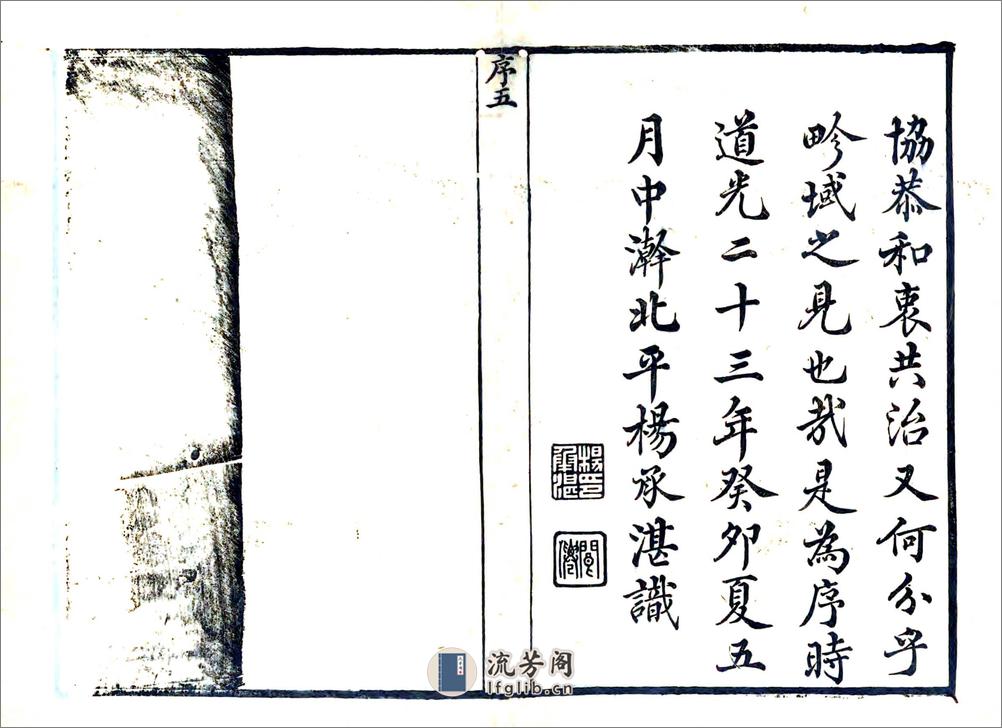 協恭和衷共治又何分乎
畛域之見也哉是為序時
道光二十三年癸卯夏五
月中澣北平楊承湛識
楊印承湛
序五
流芳阁
lfglib.cn